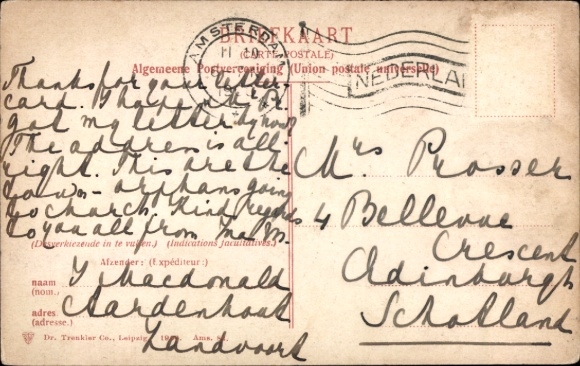 BRIEFKAART
(CARTE POSTALE)
Algemeene Postvereeniging (Union postale universelle)
AMSTERDAM
NEDERLA
Thanks for your letter-
card. I hope you've
got my letter by now?
The address is all-
right. This are the
town-orphans going
to church. Kind regards
to you all from
Mrs Prosser
4 Bellevue
Crescent
Edinburgh
Schotland
(Desverkiezende in te vullen.) (Indications facultatives.)
Afzender: (Expéditeur:)
naam J Macdonald
(nom.)
adres Aardenhout
(adresse.)
Zandvoort
Dr. Trenkler Co., Leipzig. Ams.